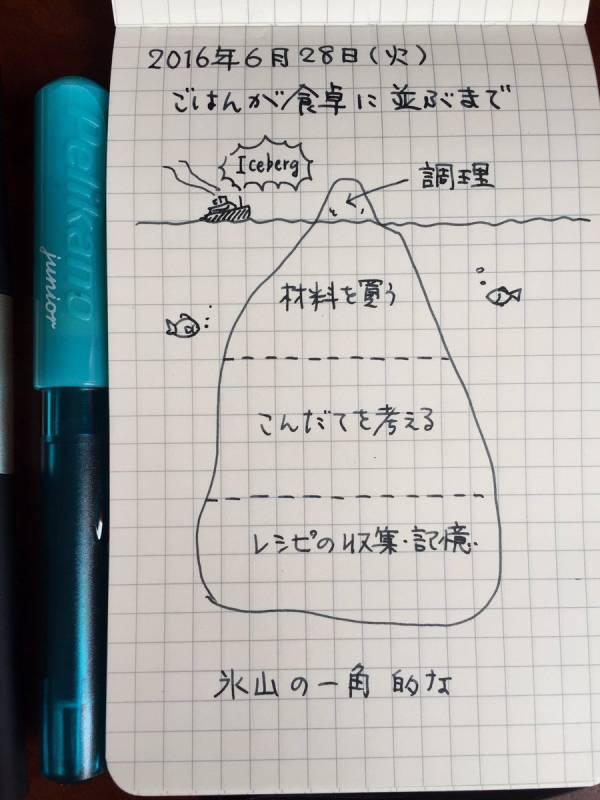 2016年6月28日(火)
ごはんが食卓に並ぶまで
Iceberg
調理
材料を買う
こんだてを考える
レシピの収集・記憶
氷山の一角的な
Pelikano
junior